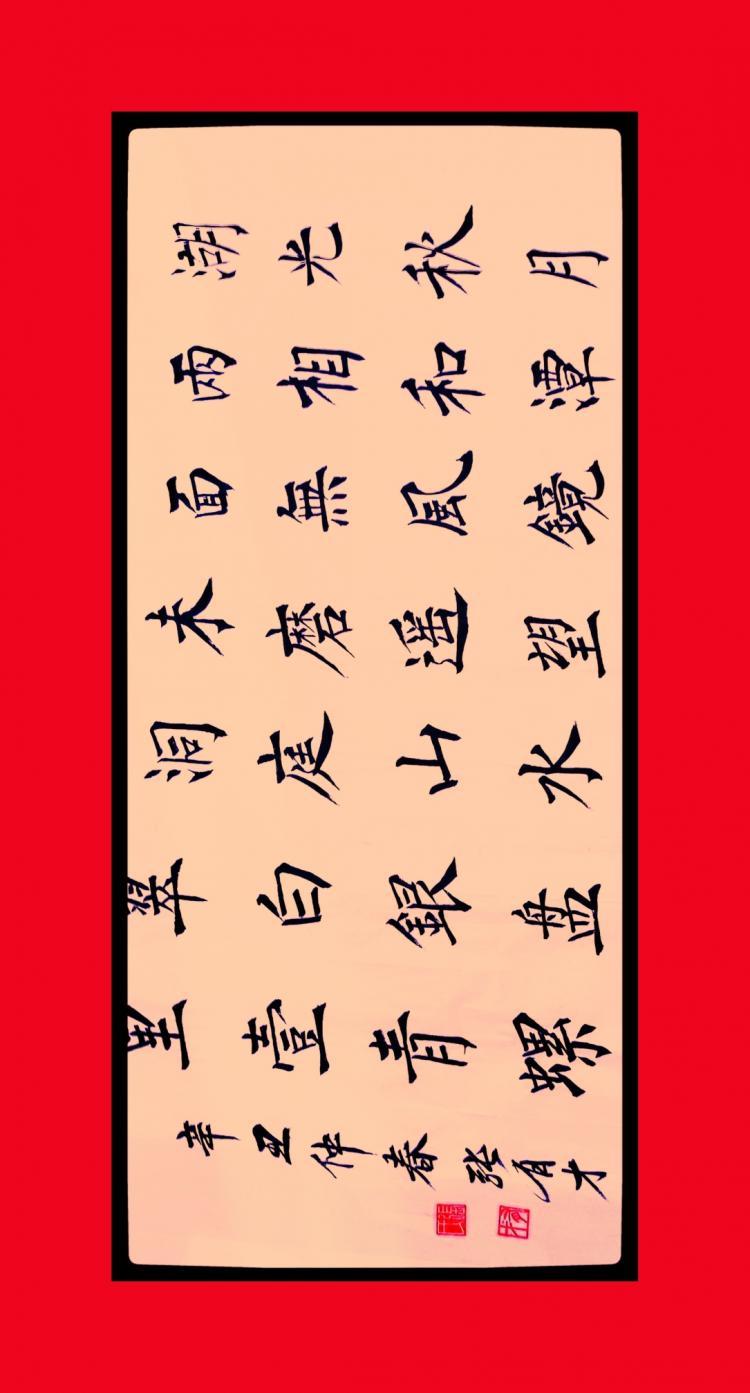 湖光秋月
兩相和潭
面無風鏡
未磨遥望
洞庭山水
翠白銀盘
里壹青螺
辛丑仲春张有才